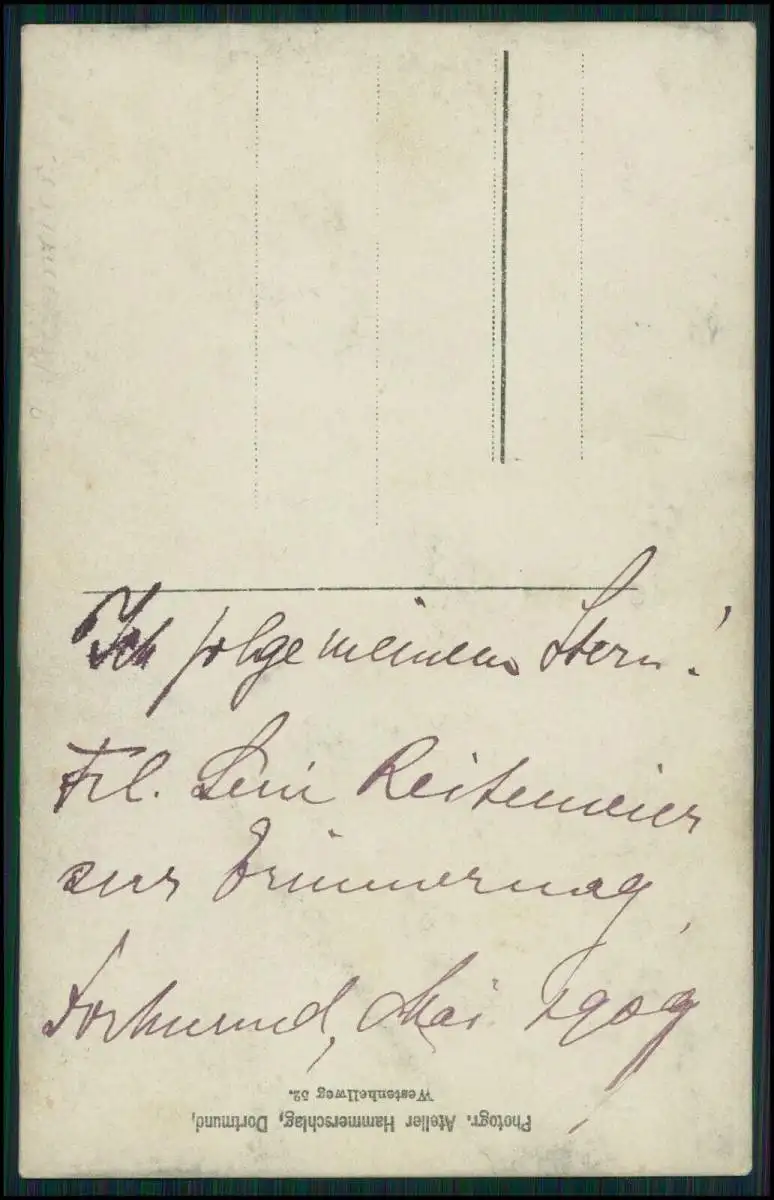 Ich folge meinem Stern!
Frl. Leni Reitemeier
zur Erinnerung,
Dortmund, Mai 1909
Photogr. Atelier Hammerschlag, Dortmund,
Westenhellweg 52.